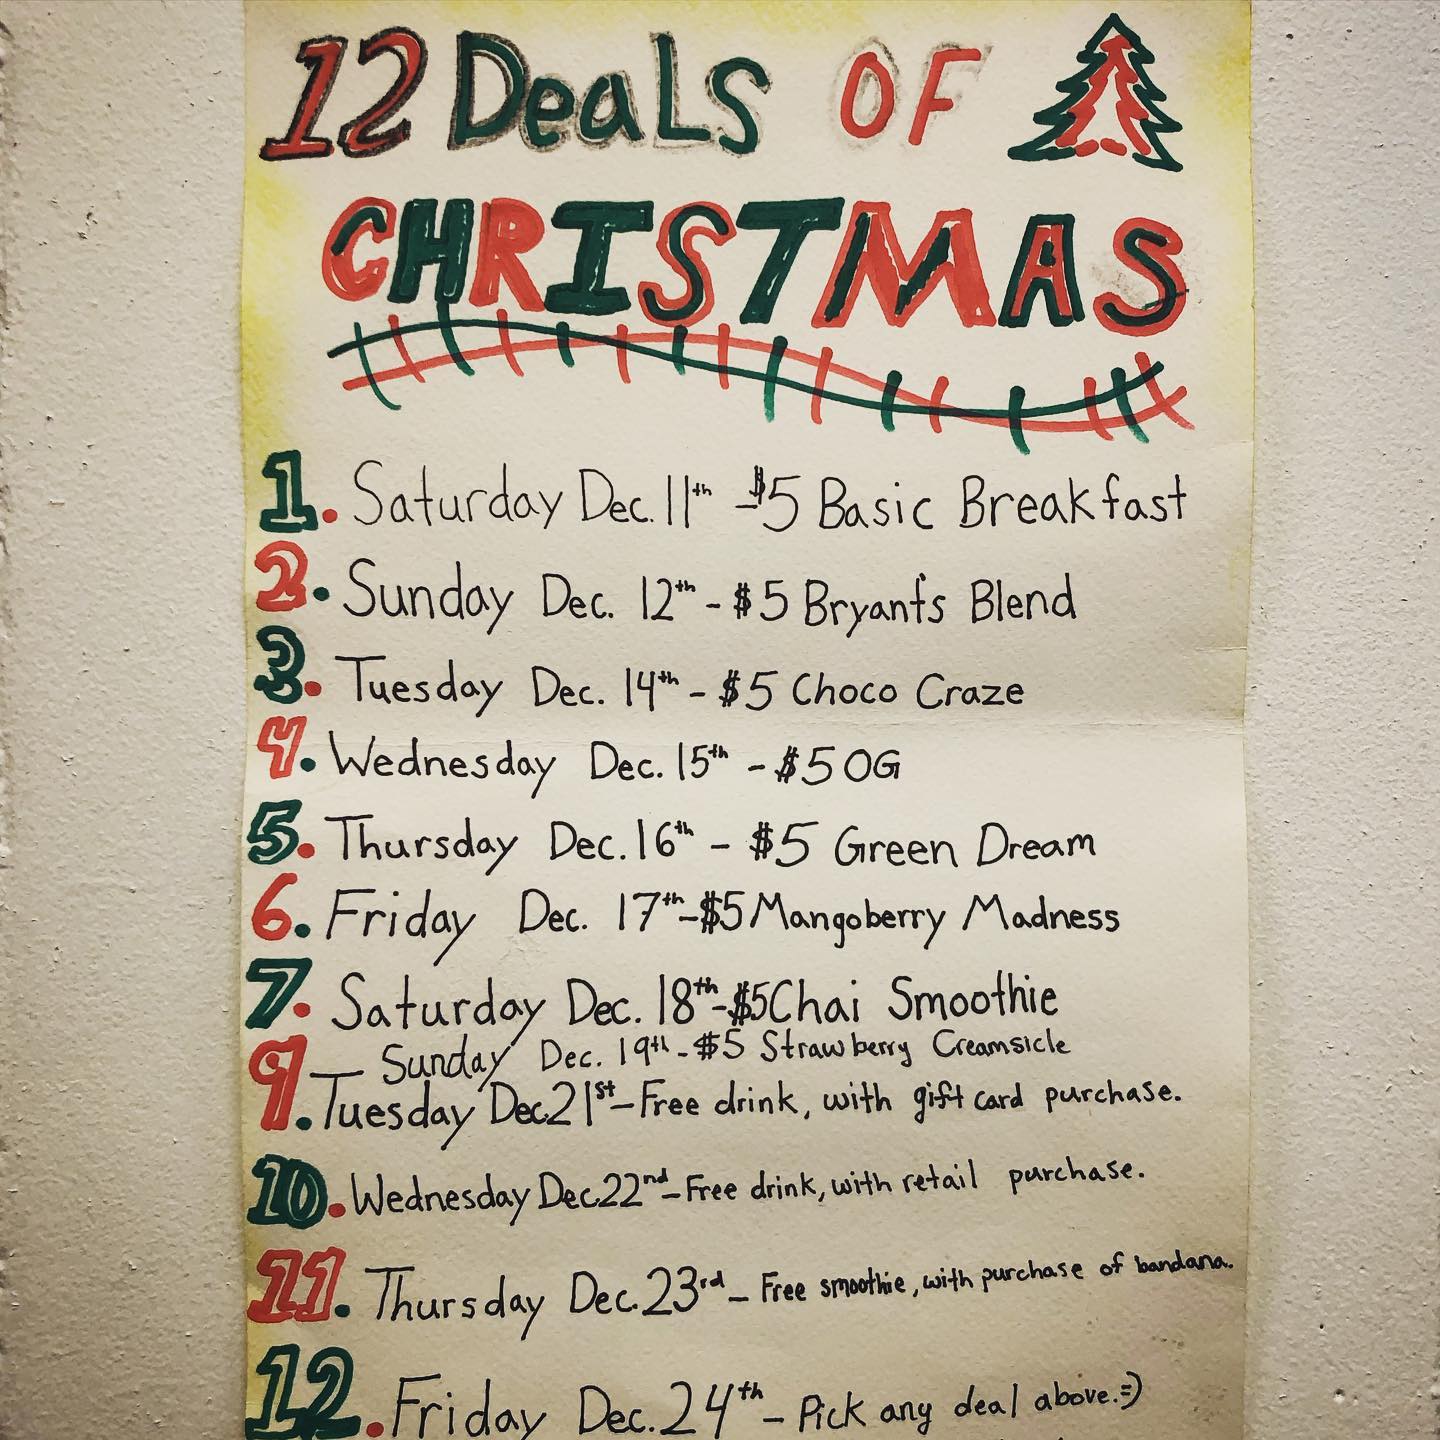 12 Deals OF
CHRISTMAS
1. Saturday Dec. 11th - $5 Basic Breakfast
2. Sunday Dec. 12th - $5 Bryant's Blend
3. Tuesday Dec. 14th - $5 Choco Craze
4. Wednesday Dec. 15th - $5 OG
5. Thursday Dec. 16th - $5 Green Dream
6. Friday Dec. 17th - $5 Mangoberry Madness
7. Saturday Dec. 18th - $5 Chai Smoothie
Sunday Dec. 19th - $5 Strawberry Creamsicle
9. Tuesday Dec. 21st - Free drink, with gift card purchase.
10. Wednesday Dec. 22nd - Free drink, with retail purchase.
11. Thursday Dec. 23rd - Free smoothie, with purchase of bandana.
12. Friday Dec. 24th - Pick any deal above. =)